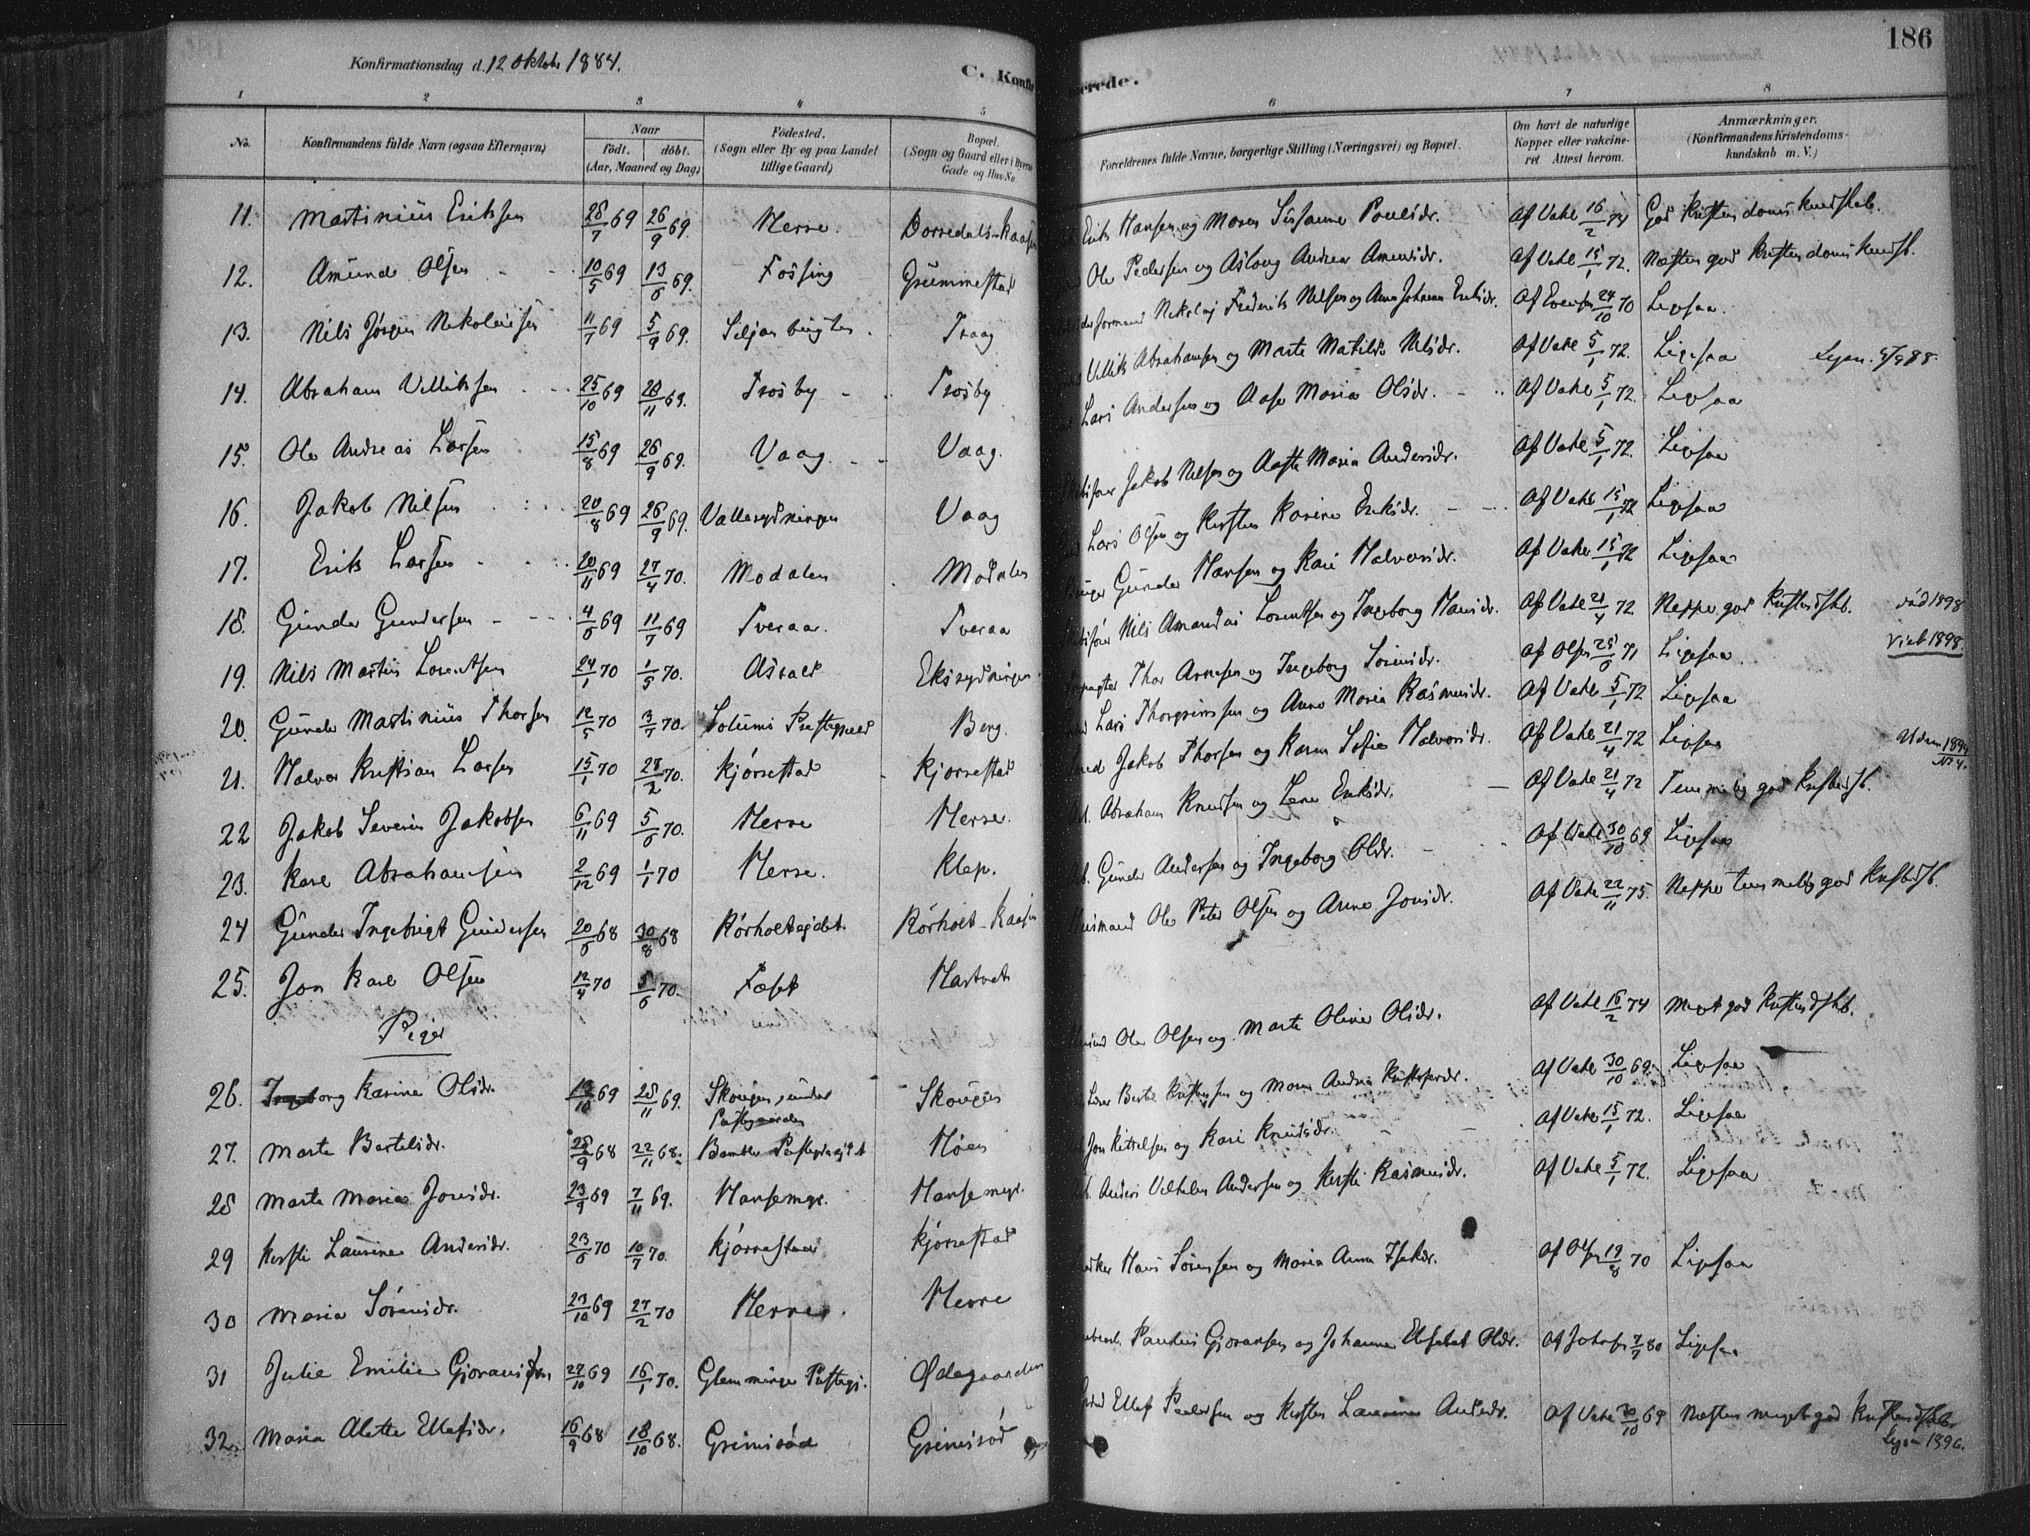 Konfirmationsdag d. 12 Oktober 1884.
C. Konfirmerede.
186
1 2 3 4 5 6 7 8
No. Konfirmandens fulde Navn (ogsaa Efternavn) Naar født. døbt. (Aar, Maaned og Dag) Fødested. (Sogn eller By og paa Landet tillige Gaard) Bopæl. (Sogn og Gaard eller i Byerne Gade og Hus-No. Forældrenes fulde Navne, borgerlige Stilling (Næringsvei) og Bopæl. Om havt de naturlige Kopper eller vakcineret Attest herom. Anmærkninger. (Konfirmandens Kristendomskundskab m. V.)
11. Martinius Eriksen 28/7 69 26/9 69. Herre. Dorsedals-Kaasa Erik Hansen og Maren Susanne Poulsdr. Af Vahl 16/2 74 God Kristendomskundskab.
12. Amund Olsen 10/5 69 13/6 69. Fossing Grummestad Ole Pedersen og Aslaug Andrea Amundsdr. Af Vahl 15/1 72. Næsten god Kristendomskundsk.
13. Nils Jørgen Nikolaisen 11/7 69 5/9 69. Siljan Traag Nikolaj Frederik Nilsen og Anne Johanne Eriksdr. Af Evensen 24/10 70 Ligesaa.
14. Abraham Villiksen 25/10 69 28/11 69. Trosby Trosby Villik Abrahamsen og Marte Matilde Nilsdr. Af Vahl 5/1 72. Ligesaa
15. Ole Andreas Larsen 15/8 69 26/9 69. Vaag Vaag. Lars Andersen og Aase Maria Olsdr. Af Vahl 5/1 72. Ligesaa
16. Jakob Nilsen 20/8 69 26/9 69. Vallesydningen Vaag Jakob Nilsen og Aaste Maria Andersdr. Af Vahl 5/1 72. Ligesaa
17. Erik Larsen 20/11 69 27/4 70. Modalen Modalen Lars Olsen og Kirsten Karine Eriksdr. Af Vahl 15/1 72 Ligesaa
18. Gunder Gundersen 4/6 69 11/7 69 Tveraa. Tveraa Gunder Hansen og Kari Halvorsdr. Af Vahl 15/1 72 Ligesaa
19. Nils Martin Lorentsen 24/1 70 1/5 70. Asvall Ekssydningen Nils Amandus Lorentsen og Ingeborg Hansdr. Af Vahl 21/4 72 Neppe god Kristendskb. død 1898
20. Gunder Martinius Thorsen 12/5 70 3/7 70. Solums Prestegjeld Berg. Thor Arnesen og Ingeborg Sørensdr. Af Olsen 25/6 71 Ligesaa. Vieb 1898.
21. Halvor Kristian Larsen 15/1 70 28/2 70. Kjørrestad Kjørrestad Lars Thorgrimsen og Anne Maria Rasmusdr. Af Vahl 5/1 72 Ligesaa
22 Jakob Severin Jakobsen 6/11 69 5/6 70. Herre Herre. Jakob Thorsen og Karen Sofie Halvorsdr. Af Vahl 21/4 72 Ligesaa
23. Karl Abrahamsen 2/12 69 1/1 70 Herre. Klep. Abraham Knudsen og Lene Eriksdr. Af Vahl 21/4 72 Temmelig god Kristendsk.
24 Gunder Ingebrigt Gundersen 20/6 68 30/8 68 Rørholtejdet. Rørholt-Kaasen Gunder Andersen og Ingeborg Olsdr. Af Vahl 30/10 69 Ligesaa
25. Jon Karl Olsen 12/4 70 5/6 70. Foset Hartvet Husmand Ole Peter Olsen og Anne Jonsdr. Af Vahl 22/11 75. Neppe temmelig god Kristendsk.
Piger
26. Ingeborg Karine Olsdr. 13/10 69 28/11 69. Skougen, under Prestegaarden Skougen Ole Olsen og Marte Oline Olsdr. Af Vahl 16/2 74 Meget god Kristendskb.
27. Marte Bertelsdr. 28/9 68 22/11 68. Bamble Høen Bertel Kristensen og Maren Andrea Kristofersdr. Af Vahl 30/10 69. Ligesaa
28 Marte Maria Jonsdr. 23/9 69 7/11 69. Hansemyr. Hansemyr. Jon Kittelsen og Kari Knutsdr. Af Vahl 15/1 72. Ligesaa
29 Kirsti Laurine Andersdr. 23/6 70 10/7 70. Kjørrestad Kjørrestad Anders Vilhelm Andersen og Kirsti Rasmusdr. Af Vahl 5/1 72. Ligesaa
30 Maria Sørensdr. 23/10 69 27/2 70 Herre. Herre Hans Sørensen og Maria Anna Isaksdr. Af Olsen 19/8 70 Ligesaa
31 Julie Emilie Gjoransdtr 27/10 69 16/1 70. Glemminge Prestegj. Ødegaarden Paulus Gjøransen og Johanne Elisabet Olsdr. 7/7 80 Ligesaa
32. Maria Alette Ellefsdr. 16/9 68 18/10 68. Grimsød Grimsød Ellef Pedersen og Kirsten Laurine Andersdr. Af Vahl 30/10 69 Næsten meget god Kristendskb.